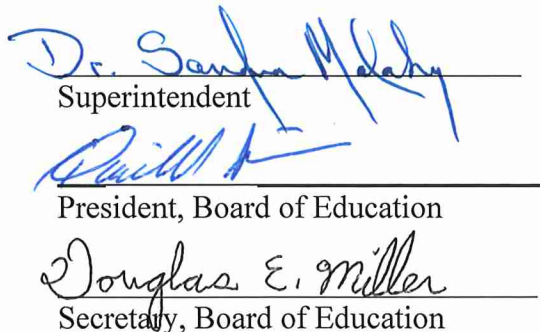 Dr. Sandra
Superintendent
President, Board of Education
Douglas E. Miller
Secretary, Board of Education